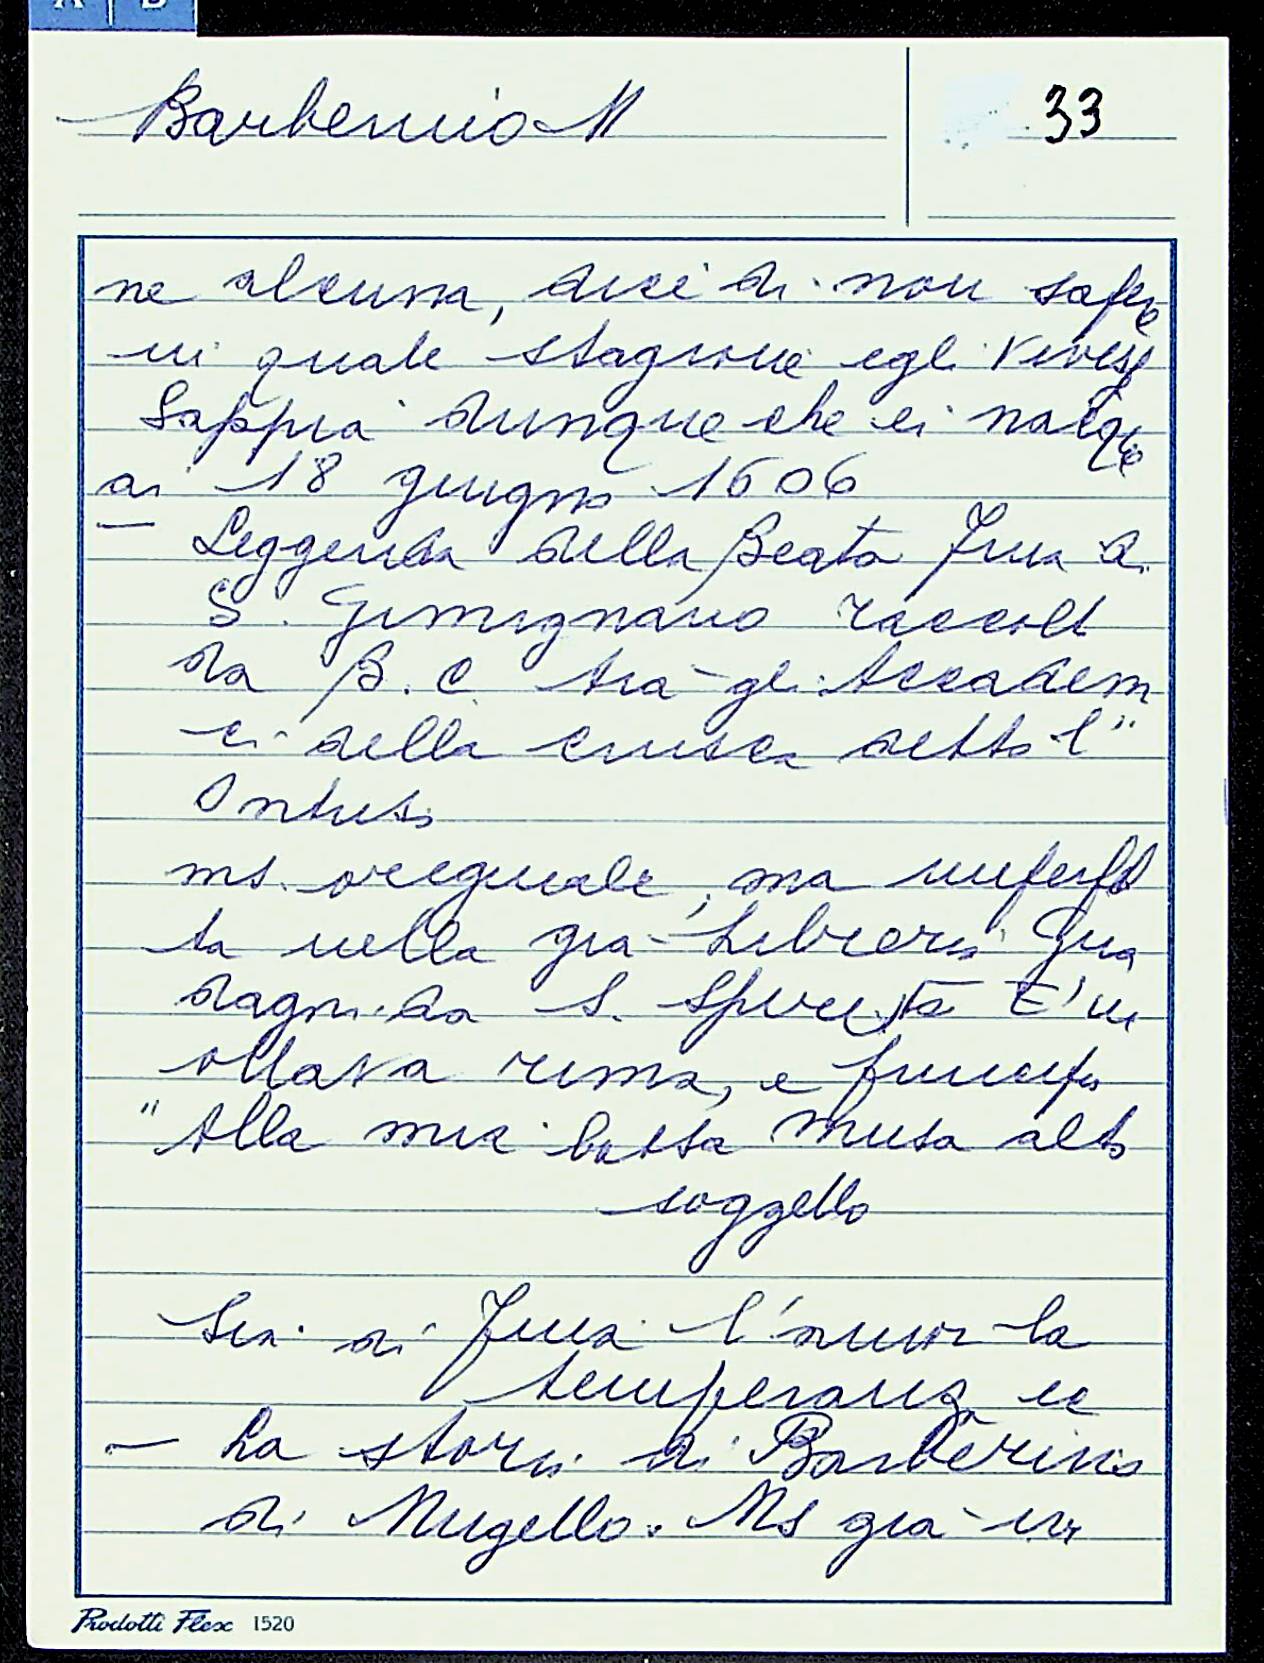 A B
Barberino M
33
ne alcuna, dice di non sape
in quale stagione egli vivess
Sappia dunque che ei nacque
ai 18 giugno 1606
— Leggenda della Beata Fina di
S. Gimignano raccolt
da B. C. tra gli Accadem
ci della crusca detto l'
ms. originale, ma imperfet
ta nella già Libreria Gua
dagni da S. Spirito È in
ottava rima, e principia
"Alla mia bassa musa alto
soggetto
Sia di Fina l'amor la
temperanza ec
— La storia di Barberino
di Mugello. Ms già in
Prodotti Flex 1520